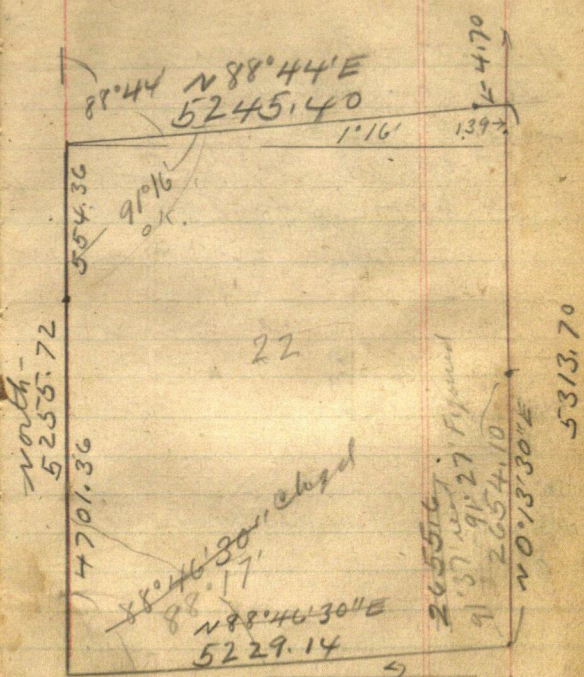 N 88°44'E
5245.40
88°44'
4.70
1°16'
139→
554.36
91°16'
O.K.
22
North-
5255.72
4701.36
88°46'30" Chgd
88°17'
N88°46'30"E
5229.14
2655.6
91°37'
91°27' Figured
2654.10
N 0°13'30"E
5313.70